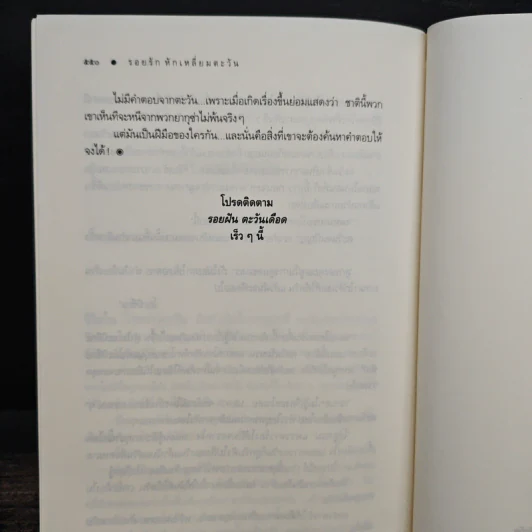 ๕๕๐ ● รอยรัก หักเหลี่ยมตะวัน
ไม่มีคำตอบจากตะวัน...เพราะเมื่อเกิดเรื่องขึ้นย่อมแสดงว่า ชาตินี้พวก
เขาเห็นทีจะหนีจากพวกยากูซ่าไม่พ้นจริงๆ
แต่มันเป็นฝีมือของใครกัน...และนั่นคือสิ่งที่เขาจะต้องค้นหาคำตอบให้
จงได้! ●
โปรดติดตาม
รอยฝัน ตะวันเดือด
เร็ว ๆ นี้